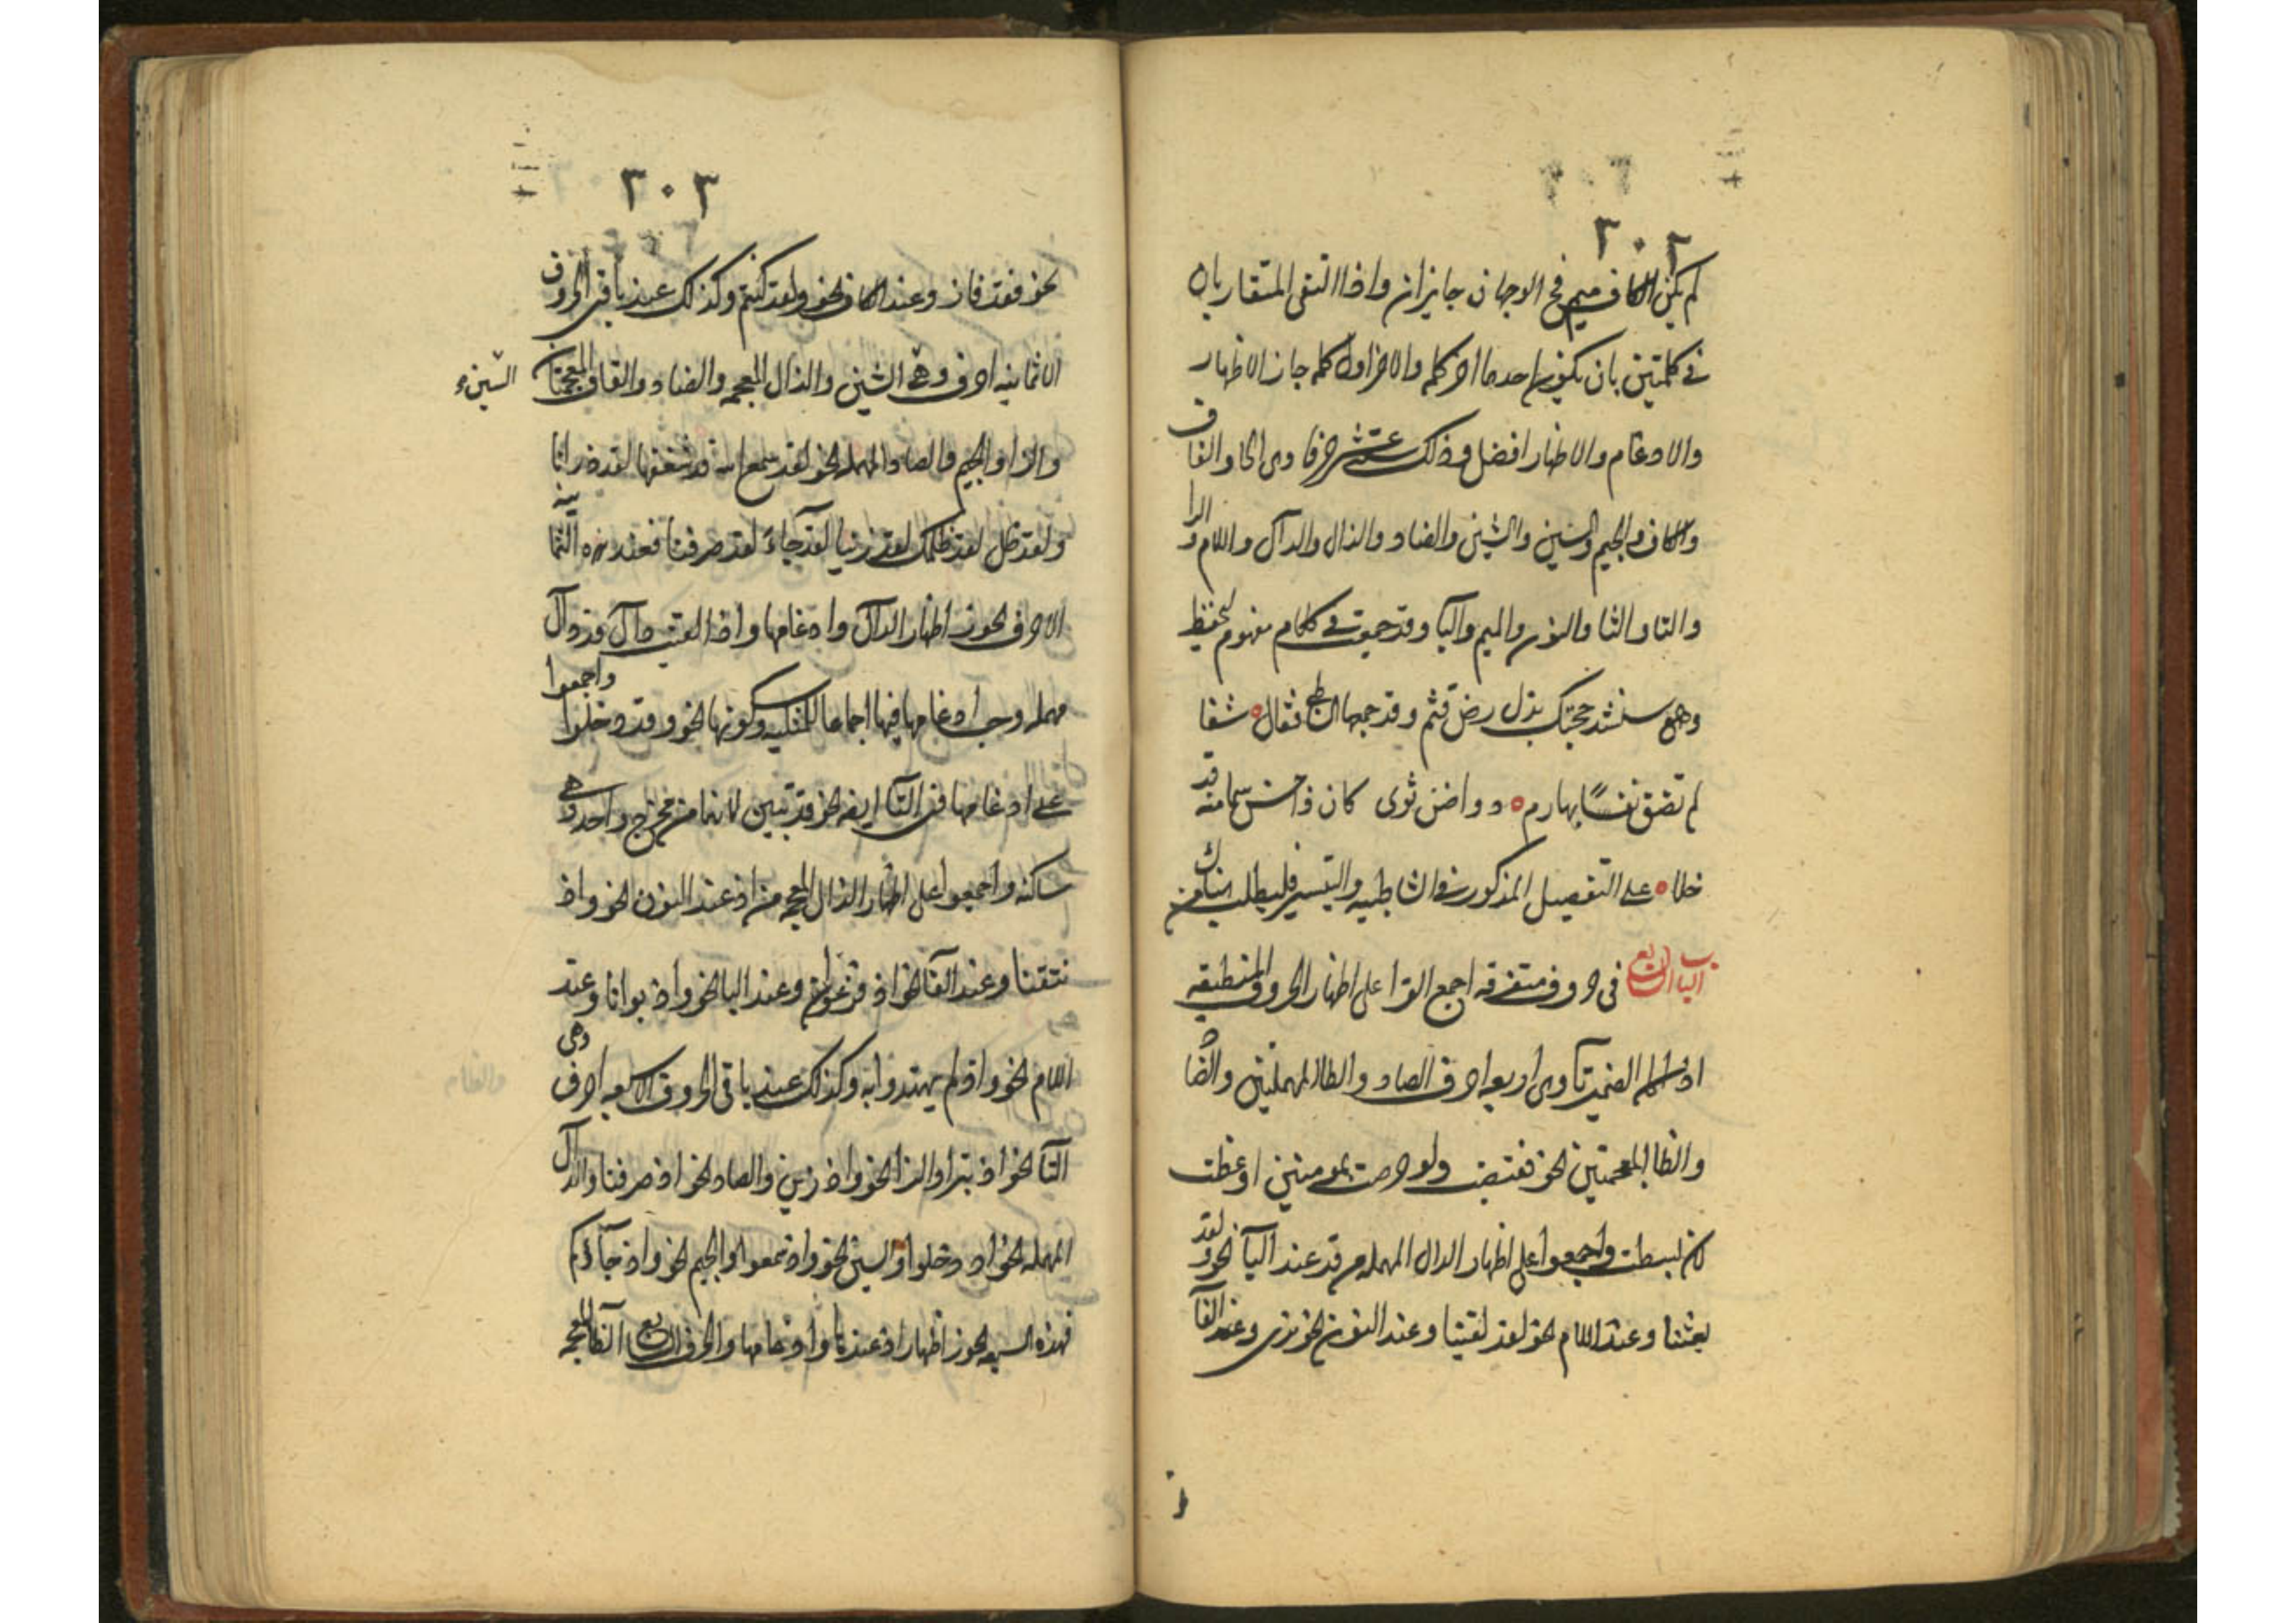 ٢٠٢
لم يكن الكاف ميم فح الوجهان جايزان واذا التقى المتقاربان
في كلمتين بان يكون احدهما اخر كلمه والاخر اول كلمه جاز الاظهار
والادغام والاظهار افضل وذلك ستة عشر حرفا وهى الحا والقاف
والكاف والجيم والسين والشين والضاد والذال والدال واللام والرا
والتا والثا والنون والميم والبا وقد جمعت في كلام مفهوم لتحفظ
وهو سنشد حجتك بذل رض قثم وقد جمعها الشاطبي فقال شفا
لم تضق نفسًا بها رم دوا ضن ثوى كان ذا حسن سا منه قد
خلا على التفصيل المذكور في الشاطبيه والتيسير فليطلب هناك من
الباب السابع في حروف متفرقه اجمع القرا على اظهار الحروف المنطبقه
الضمير تا وهى اربعه احرف الصاد والطا المهملتين والضاد
والظا المعجمتين نحو فقبضت ولو حرصت بمومنين اوعظت
لان بسطت واجمعوا على اظهار الدال المهمله من قد عند البا نحو ولقد
بعثنا وعند اللام نحو لقد لقينا وعند النون نحو قد نرى وعند الفا
٢٠٣
نحو فقد فاز وعند الكاف نحو ولقد كنتم وكذلك عند باقى الحروف
الا ثمانيه احرف وهى الشين والذال المعجمه والضاد والظا المعجمتان
السين
والزا والجيم والصاد المهمله نحو لقد سمع الله قد شغفها لقد ذرانا
ولقد ضل لقد ظلمك لقد زينا لقد جاءَ لقد صرفنا فعند هذه الثمانيه
الاحرف يجوز اظهار الدال وادغامها واذا لقيت دال قد دال
مهمله وجب ادغامها فيها اجماعا للمثليه وسكونها نحو وقد دخلوا واجمعوا
على ادغامها فى التا ايضه نحو قد تبين لانهما من مخرج واحد وهى
ساكنه واجمعوا على اظهار الذال المعجمه من اذ عند النون نحو واذ
نتقنا وعند الفا نحو اذ فزعوا وعند البا نحو واذ بوانا وعند
اللام نحو واذ لم يهتدوا به وكذلك عند باقى الحروف الا سبعه احرف وهى
التا نحو اذ تبرا والزا نحو واذ زين والصاد نحو اذ صرفنا والدال
المهمله نحو اذ دخلوا والسين نحو اذ سمعوا والجيم نحو واذ جاؤكم
فهذه السبعه يجوز اظهار اذ عندها وادغامها والحرف السابع الظا المعجمه